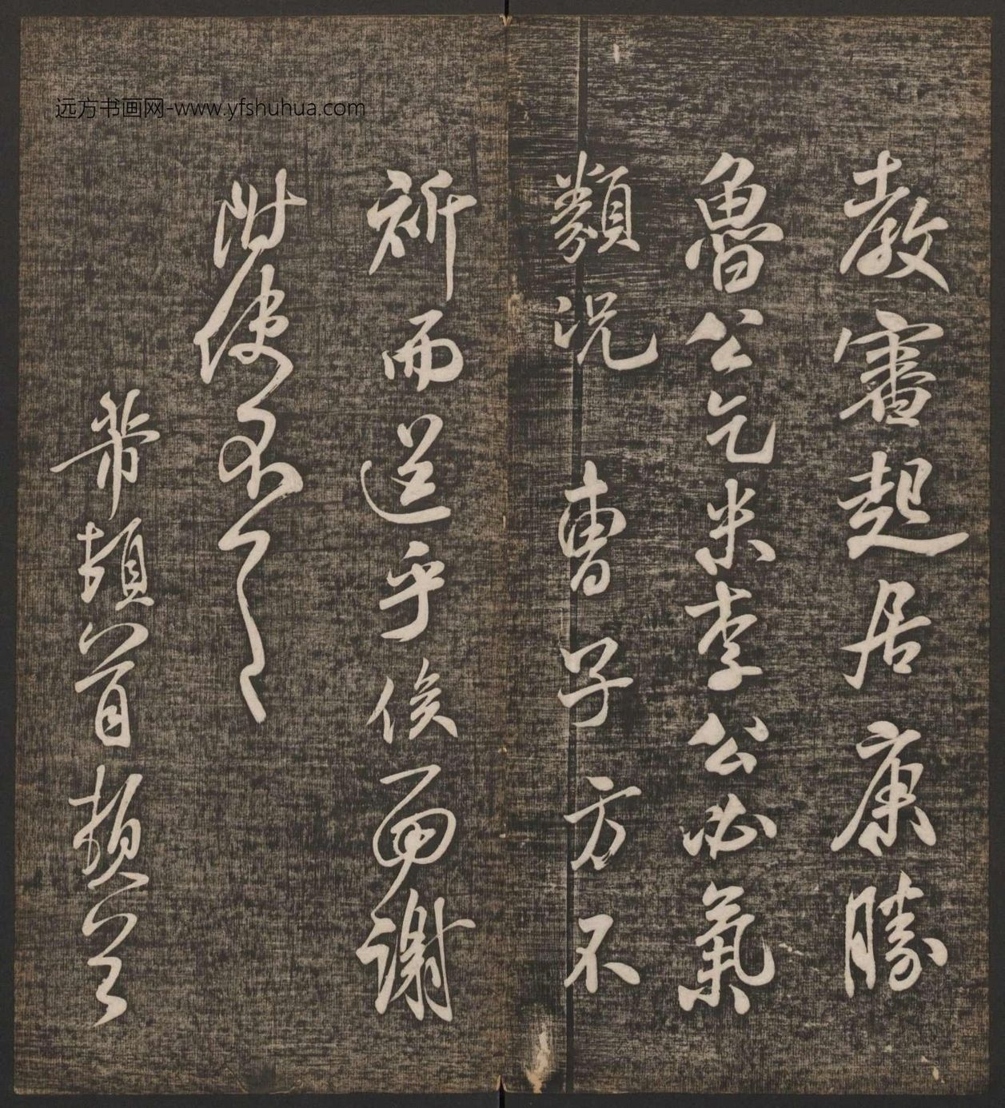 远方书画网-www.yfshuhua.com
教審起居康勝
魯公乞米李公必氣
類況 曹子方不
祈而送乎俟面謝
附使不一一
芾頓首頓首